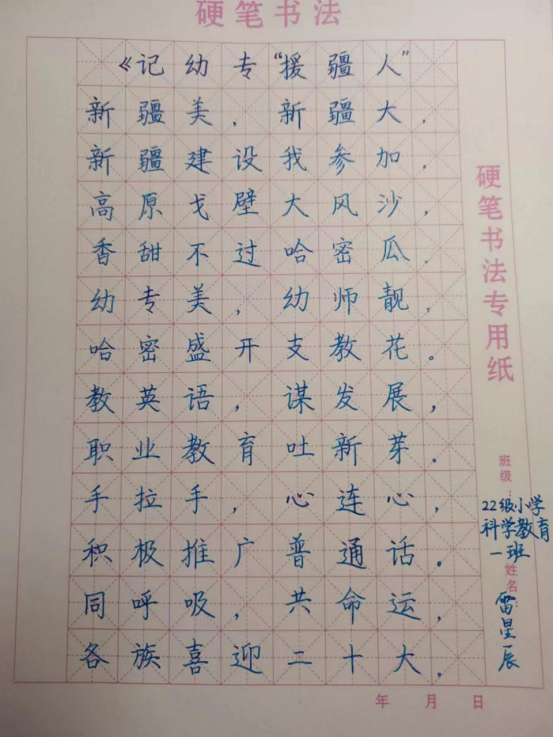 硬笔书法
《记幼专“援疆人”
新疆美，新疆大，
新疆建设我参加．
高原戈壁大风沙，
香甜不过哈密瓜．
幼专美，幼师靓，
哈密盛开支教花。
教英语，谋发展，
职业教育吐新芽。
手拉手，心连心，
积极推广普通话。
同呼吸，共命运，
各族喜迎二十大。
硬笔书法专用纸
班级
22级小学
科学教育
一班
姓名
雷星辰
年 月 日